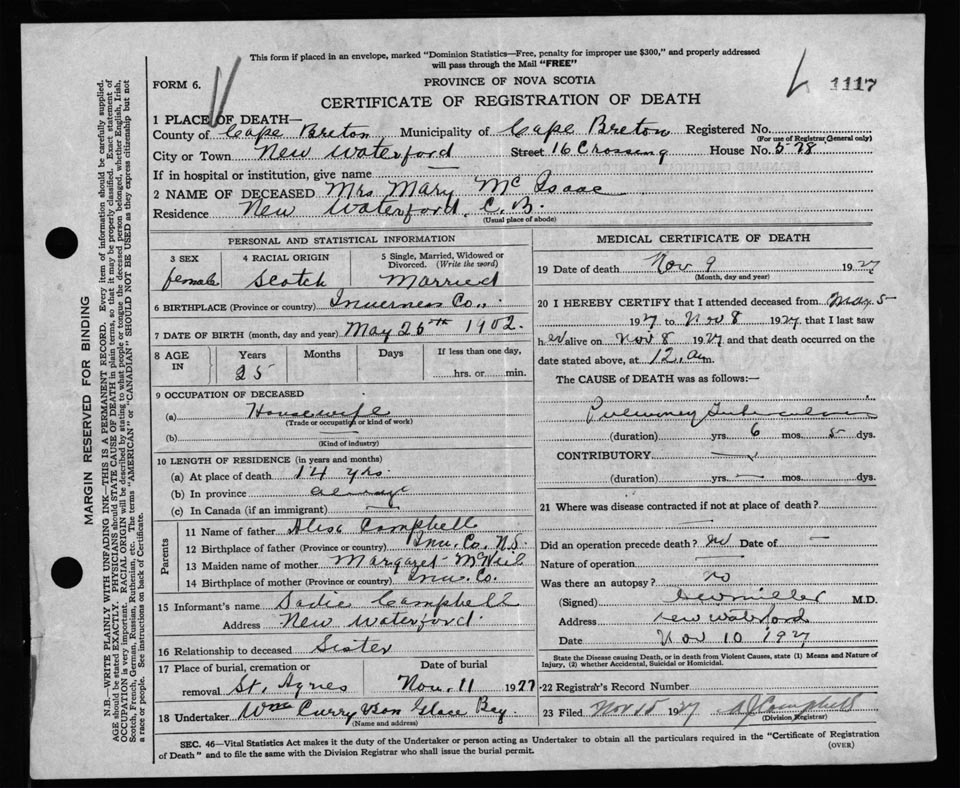 This form if placed in an envelope, marked "Dominion Statistics—Free, penalty for improper use $300," and properly addressed
will pass through the Mail "FREE"
FORM 6.
PROVINCE OF NOVA SCOTIA
1117
CERTIFICATE OF REGISTRATION OF DEATH
1 PLACE OF DEATH—
County of Cape Breton Municipality of Cape Breton Registered No.
(For use of Registrar General only)
City or Town New Waterford Street 16 Crossing House No. 578
If in hospital or institution, give name
2 NAME OF DECEASED Mrs Mary McIsaac
Residence New Waterford, C.B.
(Usual place of abode)
PERSONAL AND STATISTICAL INFORMATION
3 SEX 4 RACIAL ORIGIN 5 Single, Married, Widowed or Divorced. (Write the word)
female Scotch Married
6 BIRTHPLACE (Province or country) Inverness Co.,
7 DATE OF BIRTH (month, day and year) May 26th 1902.
8 AGE IN Years Months Days If less than one day,
25 hrs. or min.
9 OCCUPATION OF DECEASED
(a) Housewife
(Trade or occupation or kind of work)
(b)
(Kind of industry)
10 LENGTH OF RESIDENCE (in years and months)
(a) At place of death 14 yrs.
(b) In province always
(c) In Canada (if an immigrant)
Parents
11 Name of father Campbell
12 Birthplace of father (Province or country) Inv. Co. N.S.
13 Maiden name of mother Margaret McNeil
14 Birthplace of mother (Province or country) Inv. Co.
15 Informant's name Sadie Campbell
Address New Waterford.
16 Relationship to deceased Sister
17 Place of burial, cremation or removal Date of burial
St. Agnes Nov. 11 1927
18 Undertaker Wm Curry & Son Glace Bay
(Name and address)
MEDICAL CERTIFICATE OF DEATH
19 Date of death Nov 9 1927
(Month, day and year)
20 I HEREBY CERTIFY that I attended deceased from May 5
1927 to Nov 8 1927 that I last saw
her alive on Nov 8 1927 and that death occurred on the
date stated above, at 12 a.m.
The CAUSE OF DEATH was as follows:—
Pulmoney Tuberculosis
(duration) yrs. 6 mos. 5 dys.
CONTRIBUTORY
(duration) yrs. mos. dys.
21 Where was disease contracted if not at place of death?
Did an operation precede death? no Date of —
Nature of operation
Was there an autopsy? no
(Signed) Miller M.D.
Address New Waterford
Date Nov 10 1927
State the Disease causing Death, or in death from Violent Causes, state (1) Means and Nature of
Injury, (2) whether Accidental, Suicidal or Homicidal.
22 Registrar's Record Number
23 Filed Nov 15 1927 Campbell
(Division Registrar)
SEC. 46—Vital Statistics Act makes it the duty of the Undertaker or person acting as Undertaker to obtain all the particulars required in the "Certificate of Registration
of Death" and to file the same with the Division Registrar who shall issue the burial permit.
(OVER)
MARGIN RESERVED FOR BINDING
N.B.—WRITE PLAINLY WITH UNFADING INK—THIS IS A PERMANENT RECORD. Every item of information should be carefully supplied.
AGE should be stated EXACTLY. PHYSICIANS should STATE CAUSE OF DEATH in plain terms, so that it may be properly classified. Exact statement of
OCCUPATION is very important. RACIAL ORIGIN will be described by stating to what people or tongue the deceased person belonged, whether English, Irish,
Scotch, French, German, Russian, Ruthenian, etc. The terms "AMERICAN" or "CANADIAN" SHOULD NOT BE USED as they express citizenship but not
a race or people. See instructions on back of Certificate.